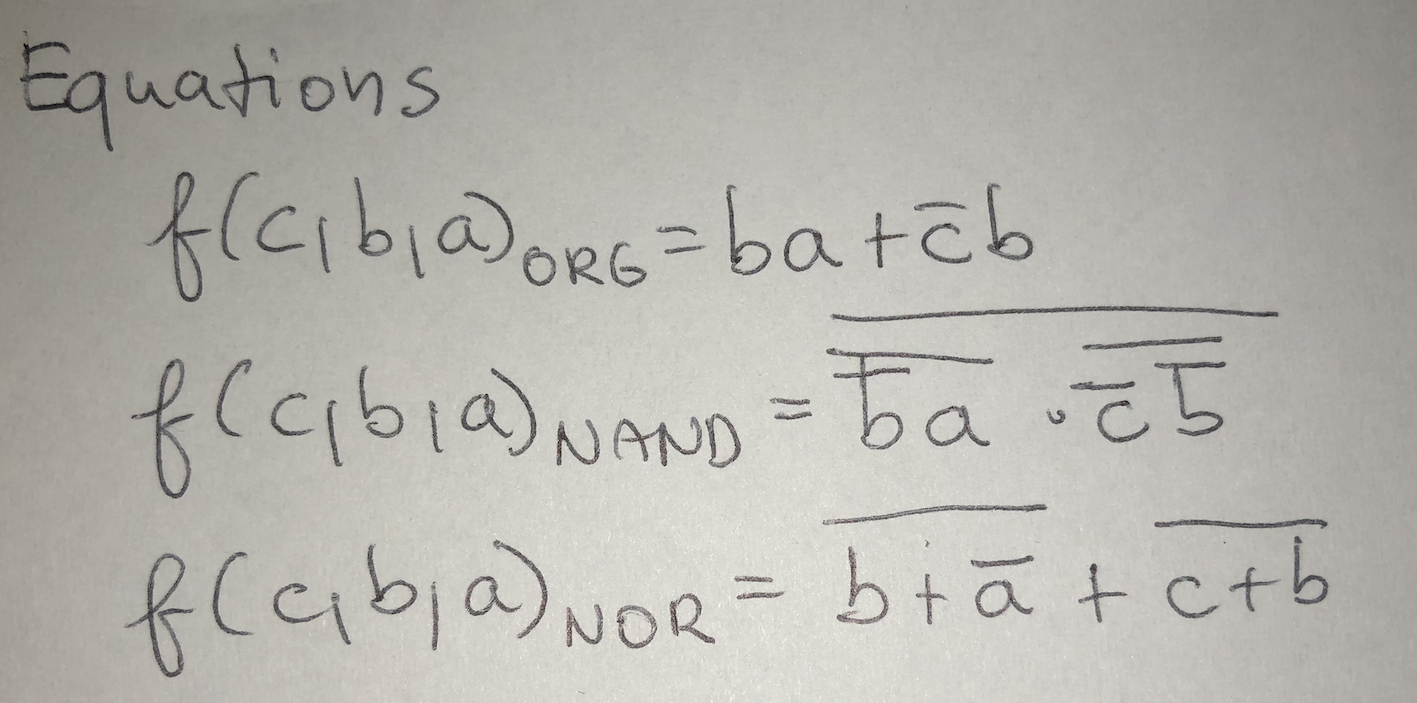 Equations
f(c,b,a)ORG = ba + c̅b
f(c,b,a)NAND = \overline{\overline{\overline{b}a} · \overline{\overline{c}\overline{b}}}
f(c,b,a)NOR = \overline{b + \overline{a}} + \overline{c + b}